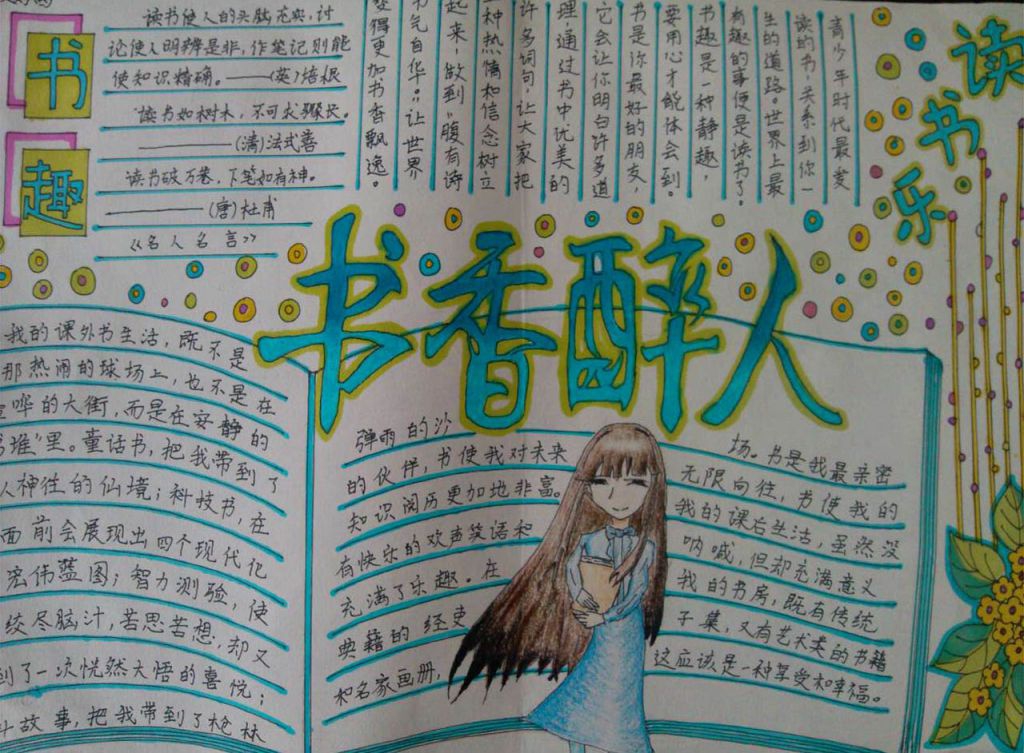 书趣
读书使人的头脑充实，讨
论使人明辨是非，作笔记则能
使知识精确。——(英)培根
读书如树木，不可求骤长。
——(清)法式善
读书破万卷，下笔如有神。
——(唐)杜甫
《名人名言》
读书乐
青少年时代最爱
读的书，关系到你一
生的道路。世界上最
有趣的事便是读书了。
书趣是一种静趣，
要用心才能体会到。
书是你最好的朋友，
它会让你明白许多道
理，通过书中优美的
许多词句，让大家把
一种热情和信念树立
起来，做到“腹有诗
书气自华。”让世界
变得更加书香飘逸。
书香醉人
我的课外书生活，既不是
那热闹的球场上，也不是在
哗的大街，而是在安静的
书堆”里。童话书，把我带到了
人神往的仙境；科技书，在
面前会展现出四个现代化
宏伟蓝图；智力测验，使
绞尽脑汁，苦思苦想，却又
到了一次恍然大悟的喜悦；
斗故事，把我带到了枪林
弹雨的沙场。书是我最亲密
的伙伴，书使我对未来无限向往，书使我的
知识阅历更加地非富。我的课后生活，虽然没
有快乐的欢声笑语和呐喊，但却充满意义
充满了乐趣。在我的书房，既有传统
典籍的经史子集，又有艺术类的书籍
和名家画册，这应该是一种享受和幸福。